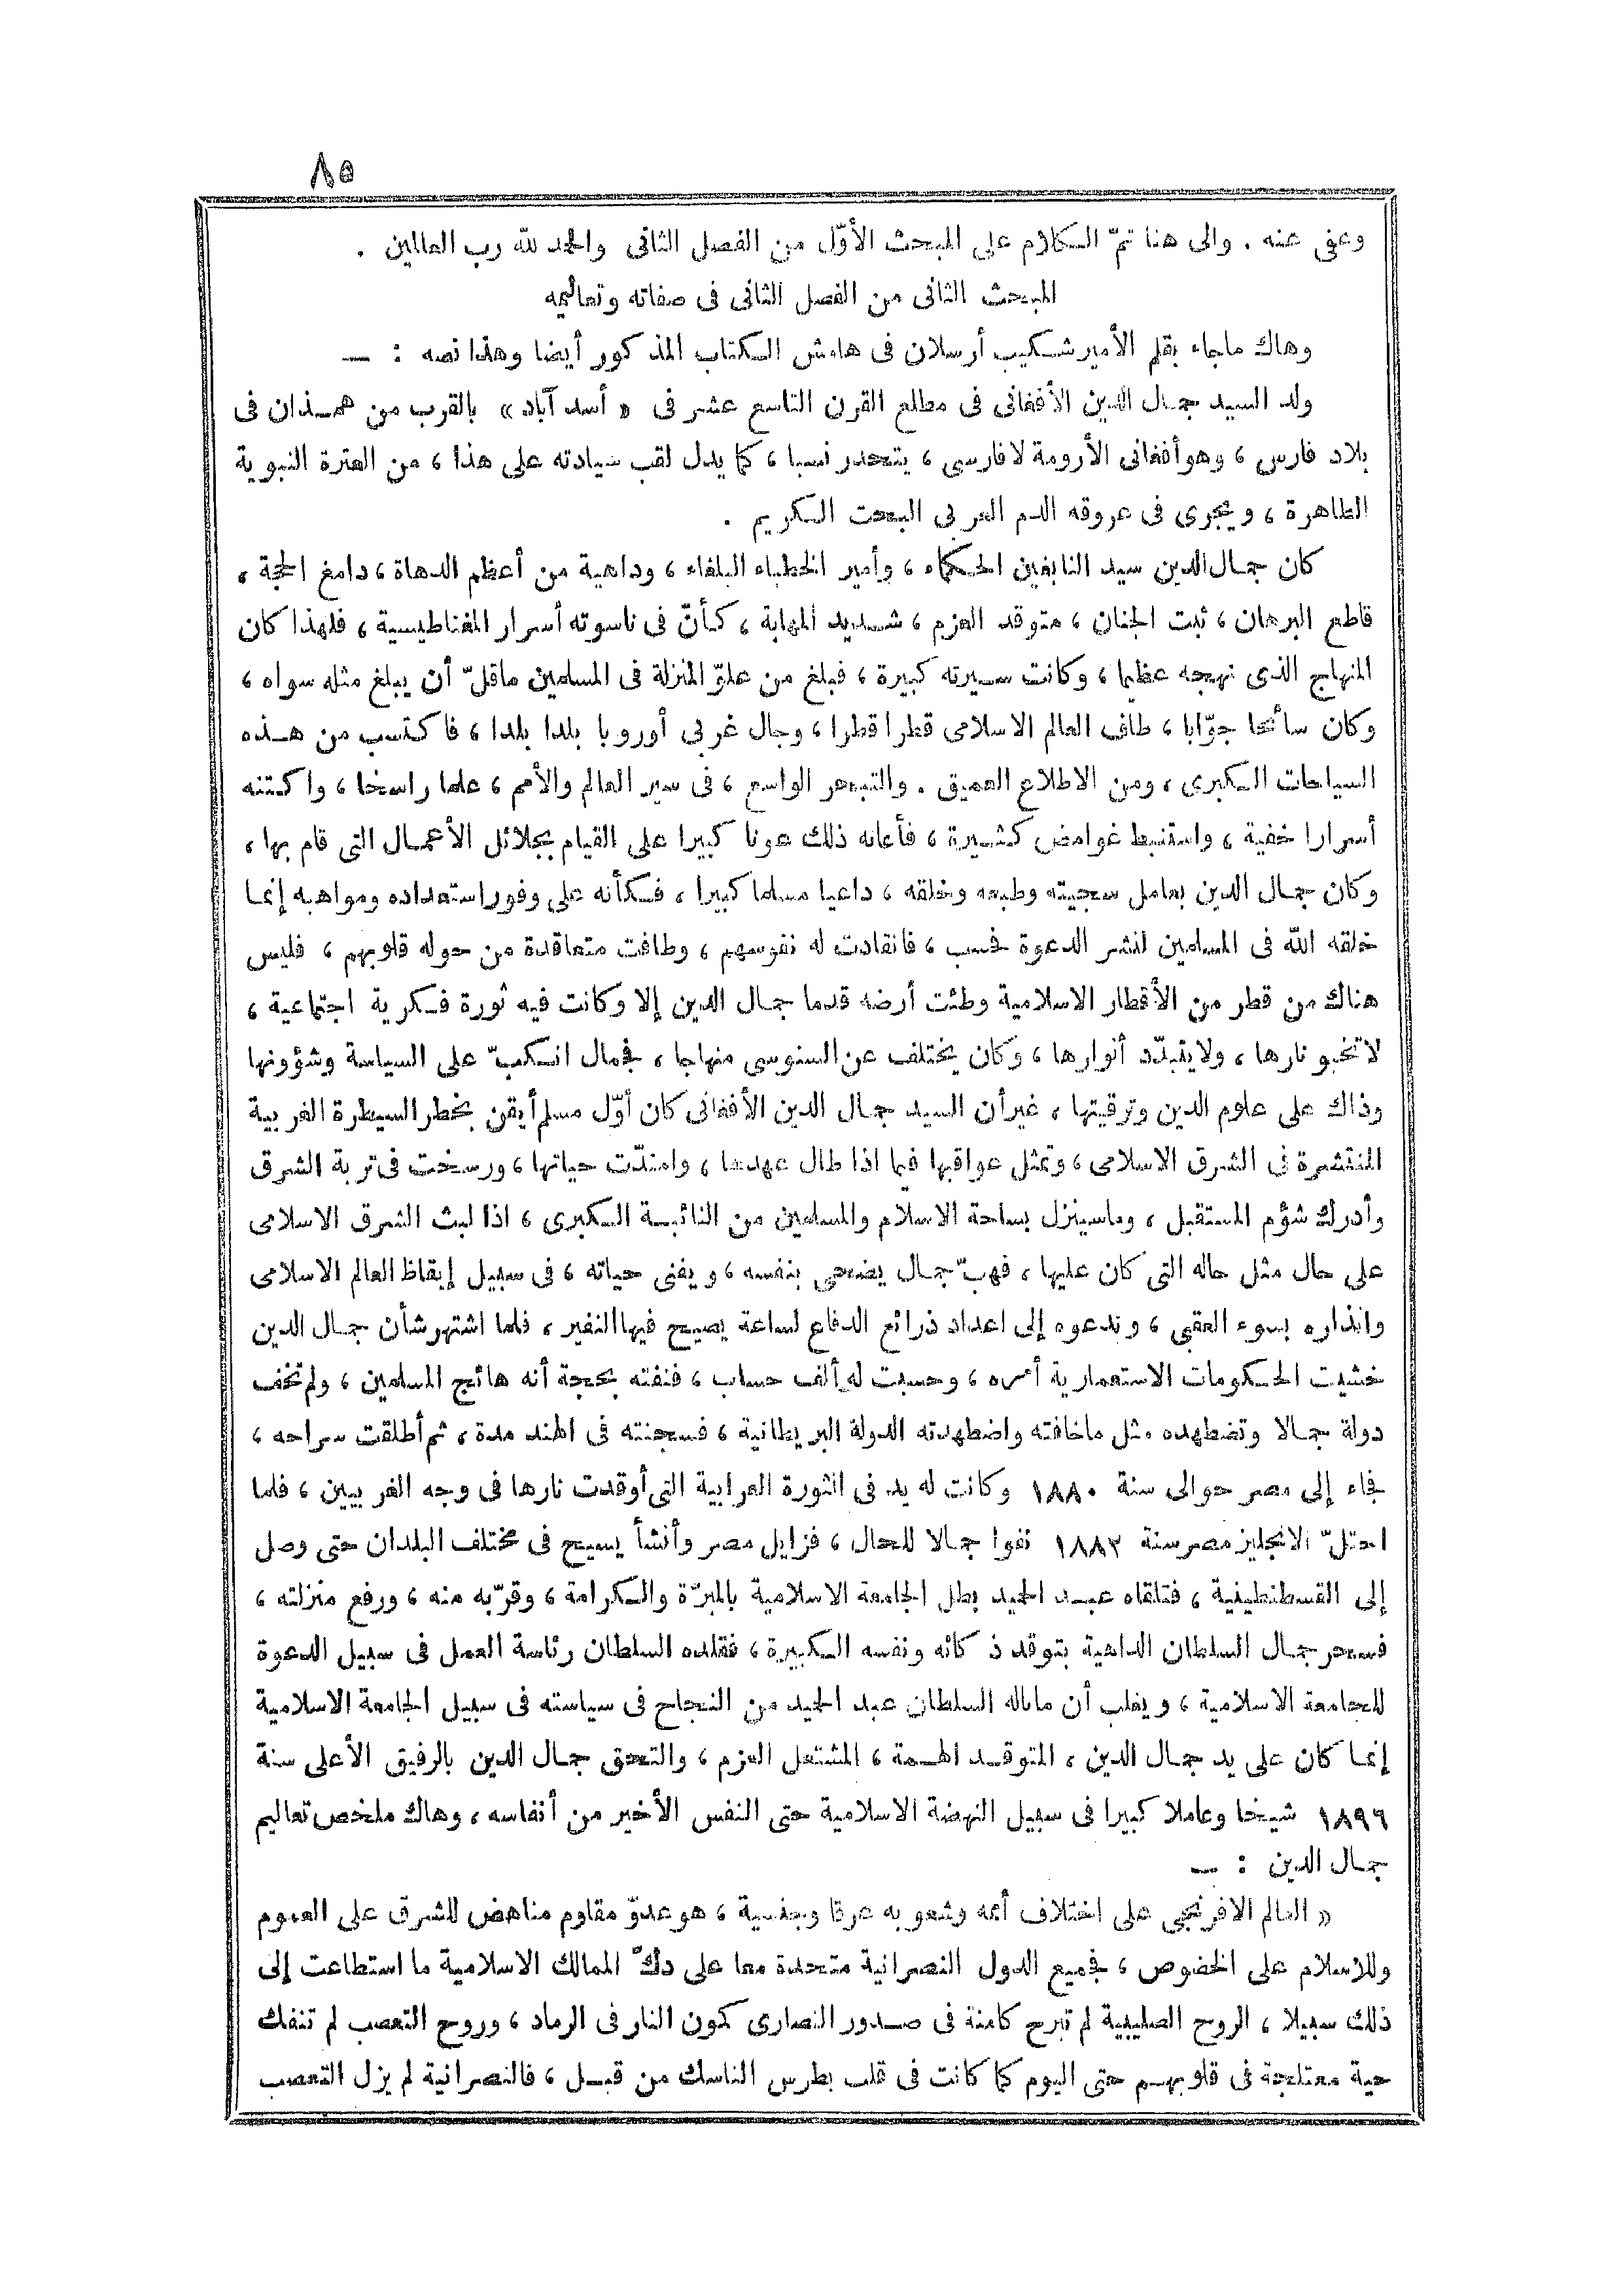 ٨٥
وعفى عنه . والى هنا تمّ الكلام على المبحث الأوّل من الفصل الثانى والحمد لله رب العالمين .
المبحث الثانى من الفصل الثانى فى صفاته وتعاليمه
وهاك ماجاء بقلم الأمير شكيب أرسلان فى هامش الكتاب المذكور أيضا وهذا نصه : ــ
ولد السيد جمال الدين الأفغانى فى مطلع القرن التاسع عشر فى « أسد آباد » بالقرب من همذان فى
بلاد فارس ، وهو أفغانى الأرومة لافارسى ، يتحدر نسبا ، كما يدل لقب سيادته على هذا ، من العترة النبوية
الطاهرة ، ويجرى فى عروقه الدم العربى البحت الكريم .
كان جمال الدين سيد النابغين الحكماء ، وأمير الخطباء البلغاء ، وداهية من أعظم الدهاة ، دامغ الحجة ،
قاطع البرهان ، ثبت الجنان ، متوقد العزم ، شديد المهابة ، كأنّ فى ناسوته أسرار المغناطيسية ، فلهذا كان
المنهاج الذى نهجه عظيما ، وكانت سيرته كبيرة ، فبلغ من علوّ المنزلة فى المسلمين ماقلّ أن يبلغ مثله سواه ،
وكان سائحا جوّابا ، طاف العالم الاسلامى قطرا قطرا ، وجال غربى أوروبا بلدا بلدا ، فاكتسب من هذه
السياحات الكبرى ، ومن الاطلاع العميق . والتبحر الواسع ، فى سير العالم والأمم ، علما راسخا ، واكتنه
أسرارا خفية ، واستنبط غوامض كثيرة ، فأعانه ذلك عونا كبيرا على القيام بجلائل الأعمال التى قام بها ،
وكان جمال الدين بعامل سجيته وطبعه وخلقه ، داعيا مسلما كبيرا ، فكأنه على وفور استعداده ومواهبه إنما
خلقه الله فى المسلمين لنشر الدعوة فحسب ، فانقادت له نفوسهم ، وطافت متعاقدة من حوله قلوبهم ، فليس
هناك من قطر من الأقطار الاسلامية وطئت أرضه قدما جمال الدين إلا وكانت فيه ثورة فكرية اجتماعية ،
لاتخبو نارها ، ولايتبدّد أنوارها ، وكان يختلف عن السنوسى منهاجا ، فجمال انكبّ على السياسة وشؤونها
وذاك على علوم الدين وترقيتها ، غير أن السيد جمال الدين الأفغانى كان أوّل مسلم أيقن بخطر السيطرة الغربية
المنتشرة فى الشرق الاسلامى ، وتمثل عواقبها فيما اذا طال عهدها ، وامتدّت حياتها ، ورسخت فى تربة الشرق
وأدرك شؤم المستقبل ، وماسينزل بساحة الاسلام والمسلمين من النائبة الكبرى ، اذا لبث الشرق الاسلامى
على حال مثل حاله التى كان عليها ، فهبّ جمال يضحى بنفسه ، ويفنى حياته ، فى سبيل إيقاظ العالم الاسلامى
وانذاره بسوء العقبى ، وندعوه إلى اعداد ذرائع الدفاع لساعة يصيح فيها النفير ، فلما اشتهر شأن جمال الدين
خشيت الحكومات الاستعمارية أمره ، وحسبت له ألف حساب ، فنفته بحجة أنه هائج المسلمين ، ولم تخف
دولة جمالا وتضطهده مثل ماخافته واضطهدته الدولة البريطانية ، فسجنته فى الهند مدة ، ثم أطلقت سراحه ،
فجاء إلى مصر حوالى سنة ١٨٨٠ وكانت له يد فى الثورة العرابية التى أوقدت نارها فى وجه الغربيين ، فلما
احتلّ الانجليز مصر سنة ١٨٨٢ نفوا جمالا للحال ، فزايل مصر وأنشأ يسيح فى مختلف البلدان حتى وصل
إلى القسطنطينية ، فتلقاه عبد الحميد بطل الجامعة الاسلامية بالمبرّة والكرامة ، وقرّبه منه ، ورفع منزلته ،
فسحر جمال السلطان الداهية بتوقد ذكائه ونفسه الكبيرة ، فقلده السلطان رئاسة العمل فى سبيل الدعوة
للجامعة الاسلامية ، ويغلب أن ماناله السلطان عبد الحميد من النجاح فى سياسته فى سبيل الجامعة الاسلامية
إنما كان على يد جمال الدين ، المتوقد الهمة ، المشتعل العزم ، والتحق جمال الدين بالرفيق الأعلى سنة
١٨٩٦ شيخا وعاملا كبيرا فى سبيل النهضة الاسلامية حتى النفس الأخير من أنفاسه ، وهاك ملخص تعاليم
جمال الدين : ــ
« العالم الافرنجى على اختلاف أممه وشعوبه عرقا وجنسية ، هو عدوّ مقاوم مناهض للشرق على العموم
وللاسلام على الخصوص ، فجميع الدول النصرانية متحدة معا على دكّ الممالك الاسلامية ما استطاعت إلى
ذلك سبيلا ، الروح الصليبية لم تبرح كامنة فى صدور النصارى كمون النار فى الرماد ، وروح التعصب لم تنفك
حية معتلجة فى قلوبهم حتى اليوم كما كانت فى قلب بطرس الناسك من قبل ، فالنصرانية لم يزل التعصب